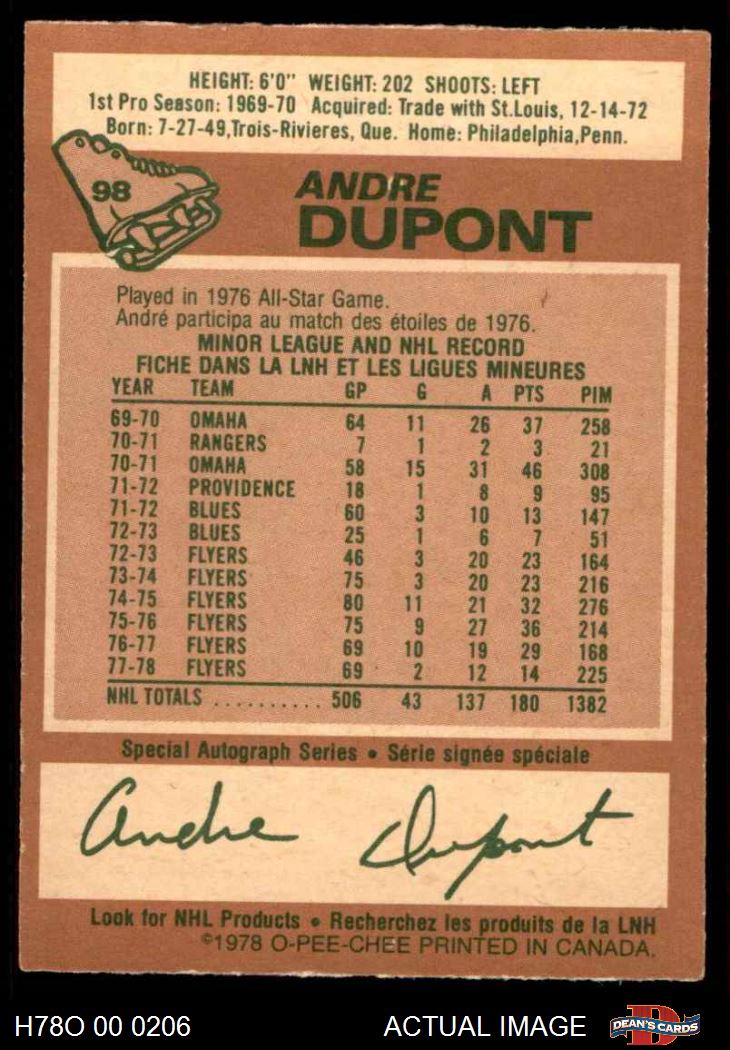 HEIGHT: 6'0" WEIGHT: 202 SHOOTS: LEFT
1st Pro Season: 1969-70 Acquired: Trade with St.Louis, 12-14-72
Born: 7-27-49,Trois-Rivieres, Que. Home: Philadelphia,Penn.
98
ANDRE
DUPONT
Played in 1976 All-Star Game.
André participa au match des étoiles de 1976.
MINOR LEAGUE AND NHL RECORD
FICHE DANS LA LNH ET LES LIGUES MINEURES
YEAR TEAM GP G A PTS PIM
69-70 OMAHA 64 11 26 37 258
70-71 RANGERS 7 1 2 3 21
70-71 OMAHA 58 15 31 46 308
71-72 PROVIDENCE 18 1 8 9 95
71-72 BLUES 60 3 10 13 147
72-73 BLUES 25 1 6 7 51
72-73 FLYERS 46 3 20 23 164
73-74 FLYERS 75 3 20 23 216
74-75 FLYERS 80 11 21 32 276
75-76 FLYERS 75 9 27 36 214
76-77 FLYERS 69 10 19 29 168
77-78 FLYERS 69 2 12 14 225
NHL TOTALS .......... 506 43 137 180 1382
Special Autograph Series • Série signée spéciale
Andre Dupont
Look for NHL Products • Recherchez les produits de la LNH
©1978 O-PEE-CHEE PRINTED IN CANADA.
H78O 00 0206 ACTUAL IMAGE
D
DEAN'S CARDS